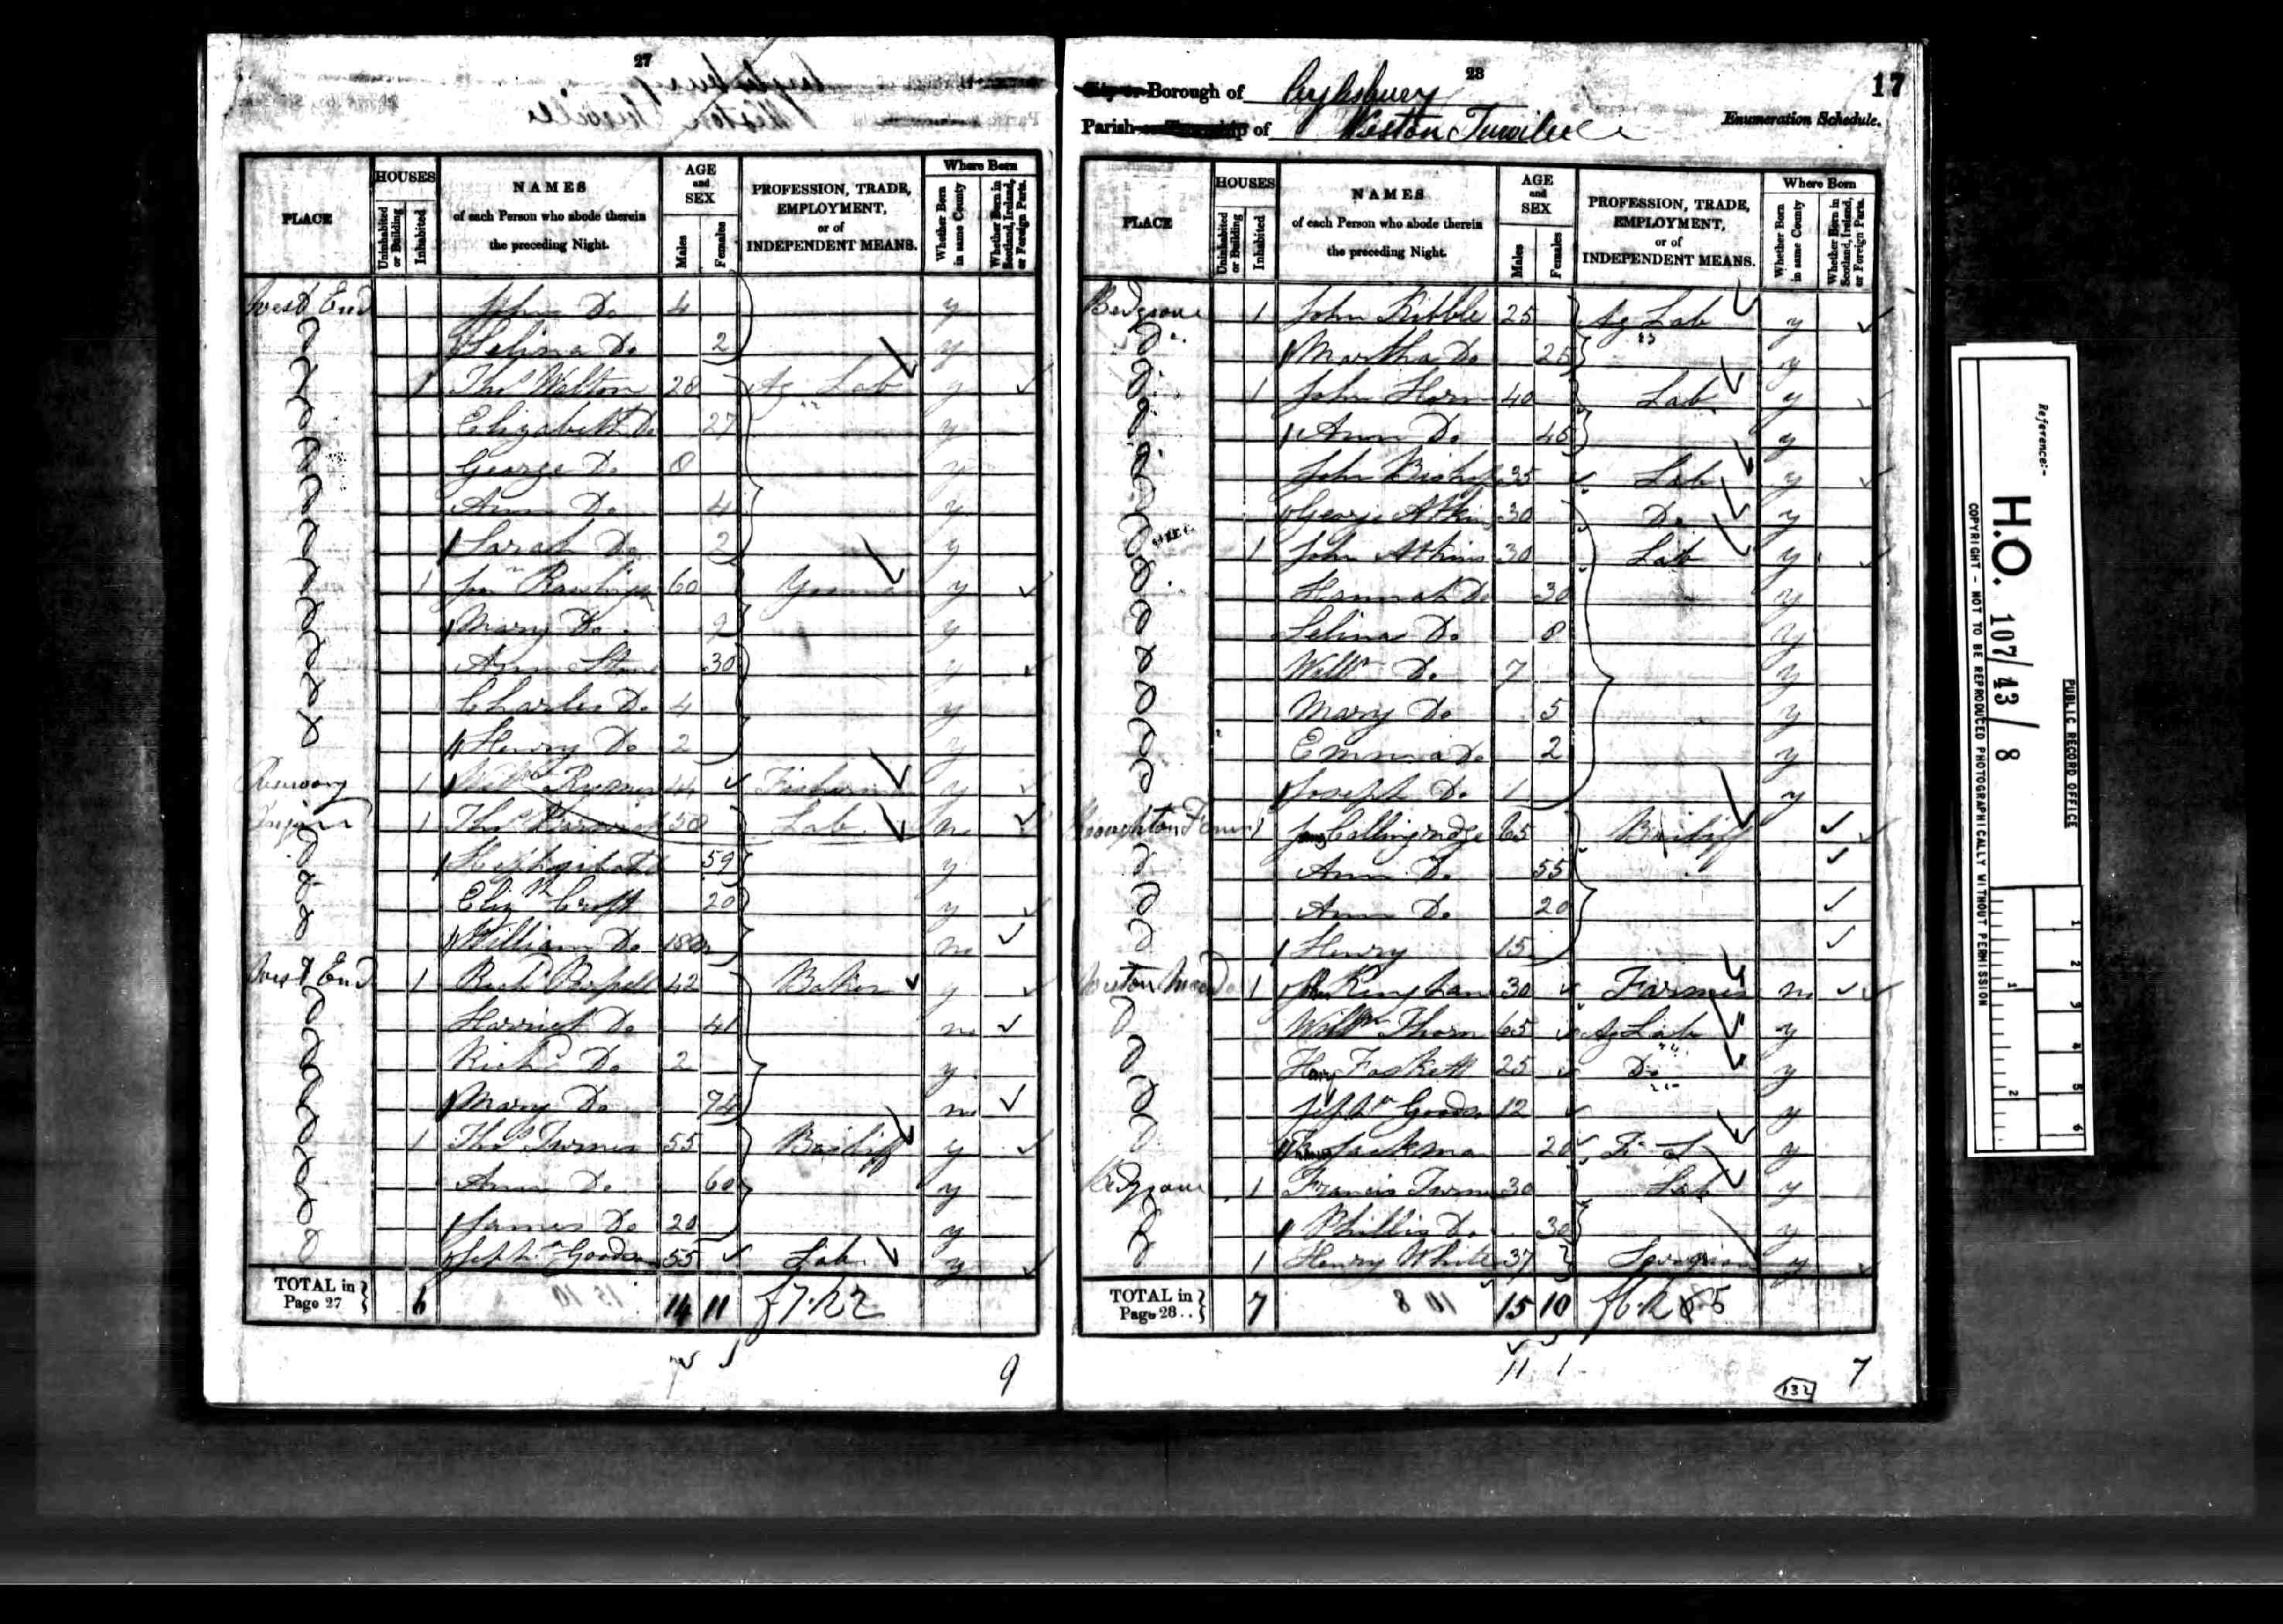 27
PLACE
HOUSES
Uninhabited or Building
Inhabited
NAMES
of each Person who abode therein
the preceding Night.
AGE
and
SEX
Males
Females
PROFESSION, TRADE,
EMPLOYMENT,
or of
INDEPENDENT MEANS.
Where Born
Whether Born in same County
Whether Born in Scotland, Ireland, or Foreign Parts.
West End John Do 4 y
Selina Do 2 y
1 Thos Walton 28 Ag Lab y
Elizabeth Do 27 y
George Do 8 y
Ann Do 4 y
Sarah Do 2 y
1 60 y
Mary Do y
Ann 30 y
Charles Do 4 y
Henry Do 2 y
1 Willm 44 y
1 Thos 50 Lab n
59 y
Elizth Croft 20 y
William Do 18 n
West End 1 Richd 42 Baker y
Harriet Do 41 n
Richd Do 2 y
Mary Do 74 n
1 Thos Turner 55 Bailiff y
Ann Do 60 y
James Do 20 y
55 Lab y
TOTAL in
Page 27
6 14 11
9
28
17
City or Borough of Aylesbury
Parish or Township of Weston Turville
Enumeration Schedule.
PLACE
HOUSES
Uninhabited or Building
Inhabited
NAMES
of each Person who abode therein
the preceding Night.
AGE
and
SEX
Males
Females
PROFESSION, TRADE,
EMPLOYMENT,
or of
INDEPENDENT MEANS.
Where Born
Whether Born in same County
Whether Born in Scotland, Ireland, or Foreign Parts.
Bedgrove 1 John Kibble 25 Ag Lab y
Do Martha Do 25 y
1 John Horn 40 Lab y
Ann Do 45 y
John Bishop 35 Lab y
George Atkins 30 Do y
1 John Atkins 30 Lab y
Hannah Do 30 y
Selina Do 8 y
Willm Do 7 y
Mary Do 5 y
Emma Do 2 y
Joseph Do 1 y
1 Collingridge 65 Bailiff
Ann Do 55
Ann Do 20
Henry 15
1 John Kingham 30 Farmer n
Willm Thorn 65 Ag Lab y
Henry Foskett 25 Do y
12 y
Jackman 20 F S y
Bedgrove 1 Francis Turner 30 Lab y
Phillis Do 30 y
1 Henry White 37 y
TOTAL in
Page 28
7 15 10
11 1
7
132
Reference:-
H.O. 107/43/8
PUBLIC RECORD OFFICE
COPYRIGHT - NOT TO BE REPRODUCED PHOTOGRAPHICALLY WITHOUT PERMISSION
1 2 3 4 5 6
1 2